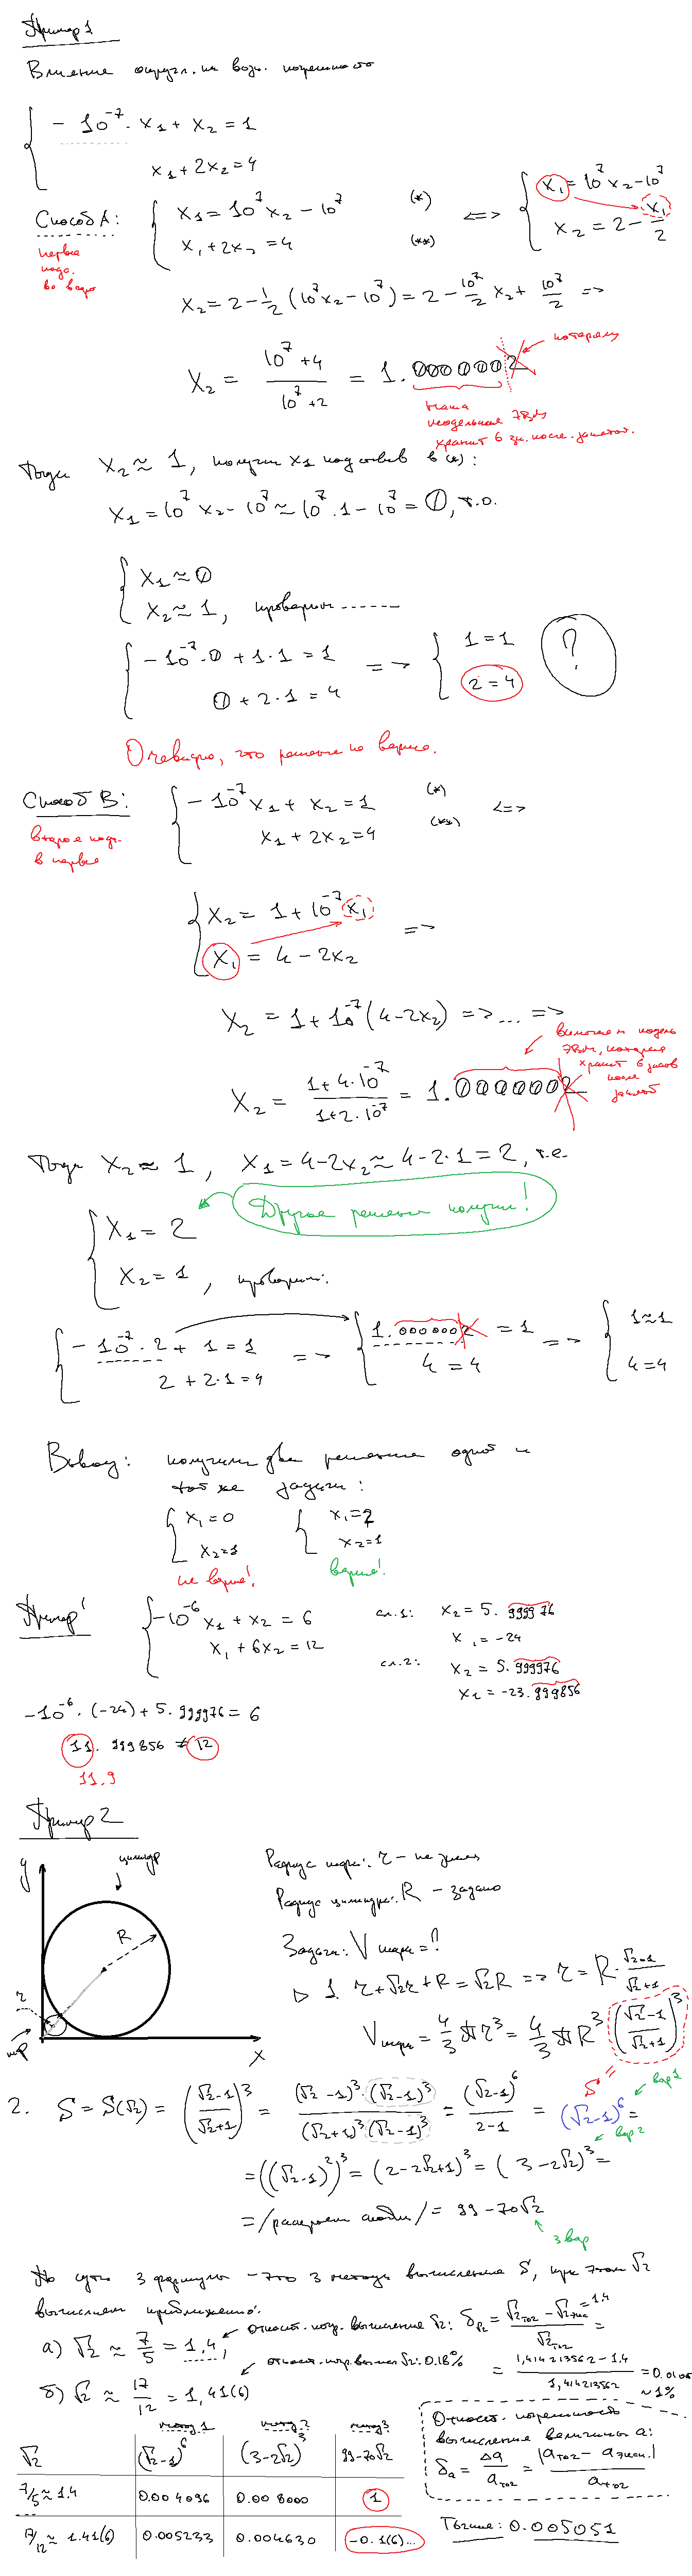 Пример 1
Влияние округл. на возн. погрешности
- 10^-7 · x1 + x2 = 1
x1 + 2x2 = 4
Способ A:
первое
подс.
во второе
x1 = 10^7 x2 - 10^7 (*)
x1 + 2x2 = 4 (**)
<=>
x1 = 10^7 x2 - 10^7
x2 = 2 - x1/2
x2 = 2 - 1/2 (10^7 x2 - 10^7) = 2 - 10^7/2 x2 + 10^7/2 =>
x2 = (10^7 + 4)/(10^7 + 2) = 1.0000002
потеряем
Наша
модельная ЭВМ
хранит 6 зн. после запятой.
Тогда x2 ≈ 1, получим x1 подставив в (*):
x1 = 10^7 x2 - 10^7 ≈ 10^7 · 1 - 10^7 = 0, т.о.
x1 ≈ 0
x2 ≈ 1, проверим
-10^-7 · 0 + 1 · 1 = 1
0 + 2 · 1 = 4
=>
1 = 1
2 = 4
?
Очевидно, это решение не верно.
Способ B:
второе подс.
в первое
-10^-7 x1 + x2 = 1 (*)
x1 + 2x2 = 4 (**)
<=>
x2 = 1 + 10^-7 x1
x1 = 4 - 2x2
=>
x2 = 1 + 10^-7 (4 - 2x2) => ... =>
ЭВМ, которая
хранит 6 знаков
после
запятой
x2 = (1 + 4·10^-7)/(1 + 2·10^-7) = 1.0000002
Тогда x2 ≈ 1, x1 = 4 - 2x2 ≈ 4 - 2·1 = 2, т.е.
Другое решение получили!
x1 = 2
x2 = 1, проверим:
- 10^-7 · 2 + 1 = 1
2 + 2·1 = 4
=>
1.0000002 = 1
4 = 4
=>
1 ≈ 1
4 = 4
Вывод: получили два решения одной и
той же задачи:
x1 = 0
x2 = 1
не верное!
x1 = 2
x2 = 1
верное!
Пример'
-10^-6 x1 + x2 = 6
x1 + 6x2 = 12
сп.1: x2 = 5.999976
x1 = -24
сп.2: x2 = 5.999976
x1 = -23.999856
-10^-6 · (-24) + 5.999976 = 6
11.999856 ≠ 12
11.9
Пример 2
y
цилиндр
R
r
шар
x
Радиус шара: r - не знаем
Радиус цилиндра: R - задано
Задача: V шара = ?
▷ 1. r + √2r + R = √2R => r = R · (√2-1)/(√2+1)
Vшара = 4/3 πr^3 = 4/3 πR^3 ((√2-1)/(√2+1))^3
S "
2. S = S(√2) = ((√2-1)/(√2+1))^3 = (√2-1)^3·(√2-1)^3/((√2+1)^3(√2-1)^3) = (√2-1)^6/(2-1) = (√2-1)^6 =
вар 1
вар 2
= ((√2-1)^2)^3 = (2-2√2+1)^3 = (3-2√2)^3 =
= /раскроем скобки/ = 99 - 70√2
3 вар
По сути 3 формулы - это 3 метода вычисления S, при этом √2
вычисляем приближенно:
а) √2 ≈ 7/5 = 1.4,
относит. погр. вычисления √2: δ√2 = (√2точ - √2) / √2точ =
=1.4
= (1,414213562 - 1.4)/1,414213562 = 0.0100
≈ 1%
б) √2 ≈ 17/12 = 1,41(6)
относит. погр. вычисл √2: 0.18%
Относит. погрешность
вычисления величины a:
δa = Δa/aточ = |aточ - a|/aточ
метод 1 метод 2 метод 3
√2 (√2-1)^6 (3-2√2)^3 99-70√2
7/5 ≈ 1.4 0.004096 0.008000 1
17/12 ≈ 1.41(6) 0.005233 0.004630 -0.1(6)...
Точное: 0.005051